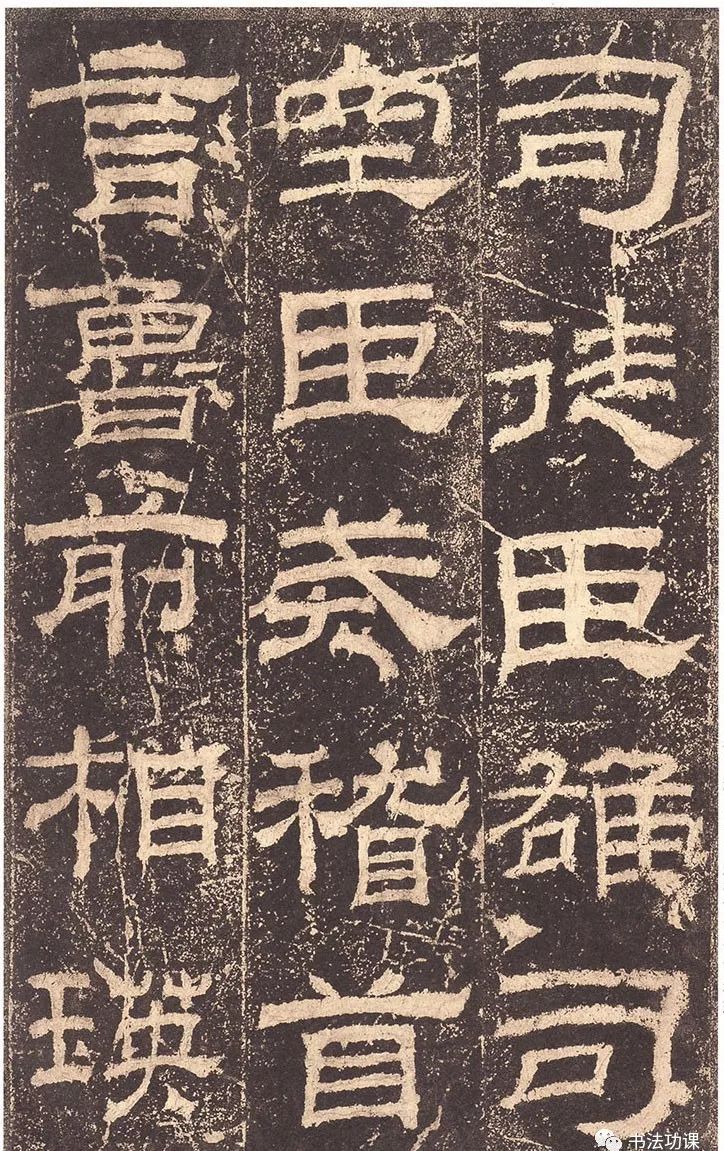 司徒臣雄司
空臣戒稽首
言魯前相瑛
书法功课